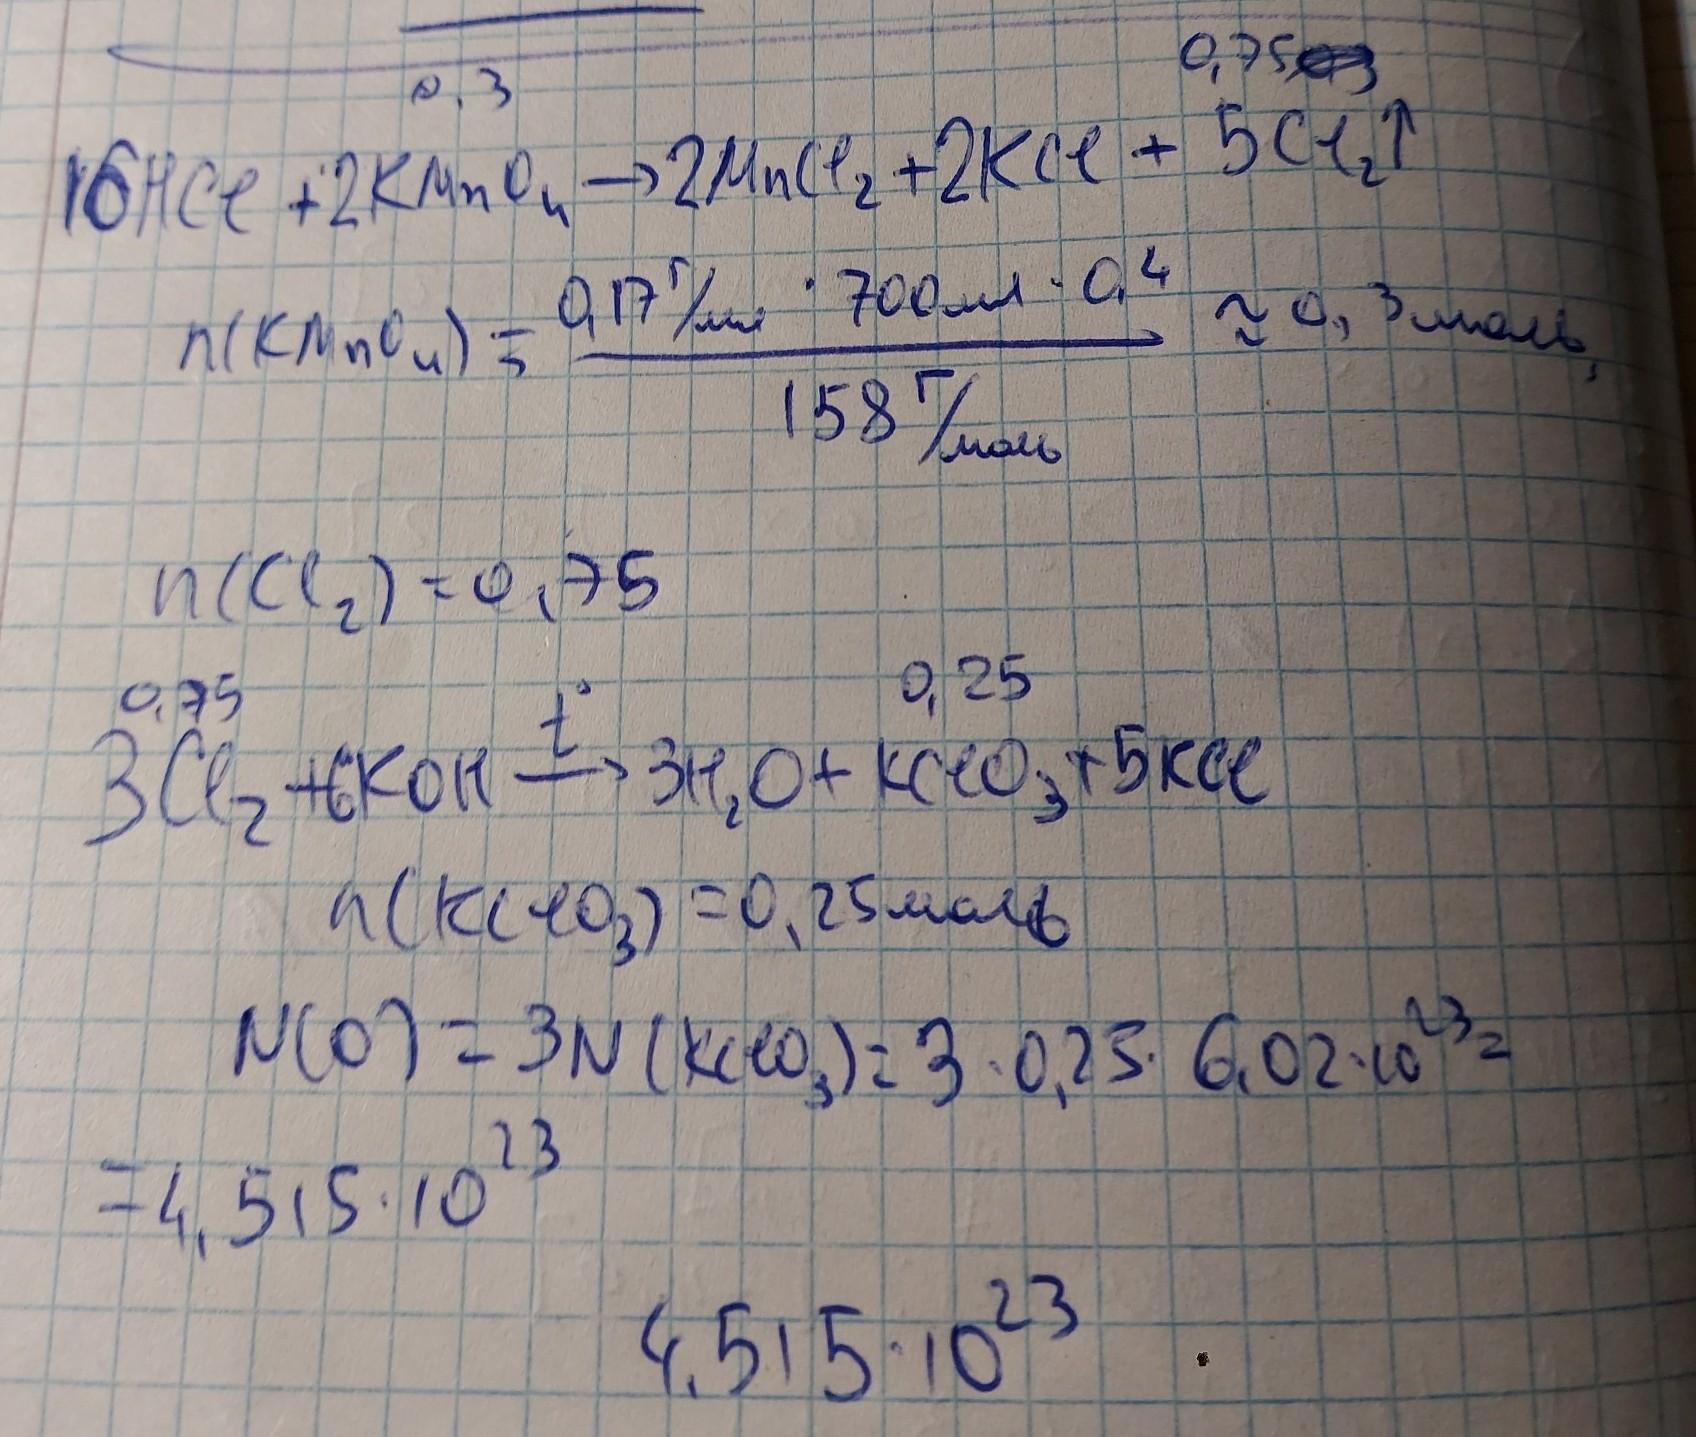 0,3 0,75
16HCl + 2KMnO₄ → 2MnCl₂ + 2KCl + 5Cl₂↑
n(KMnO₄) = 0,17 г/мл · 700мл · 0,4 / 158 г/моль ≈ 0,3моль,
n(Cl₂) = 0,75
0,75 0,25
3Cl₂ + 6KOH t° → 3H₂O + KClO₃ + 5KCl
n(KClO₃) = 0,25моль
N(O) = 3N(KClO₃) = 3 · 0,25 · 6,02 · 10²³ =
= 4,515 · 10²³
4,515 · 10²³